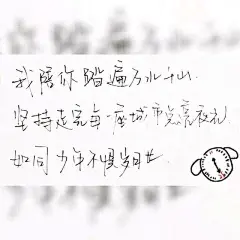 我陪你踏遍万水千山
坚持走完每一座城市点亮夜光
如同少年不惧岁月长